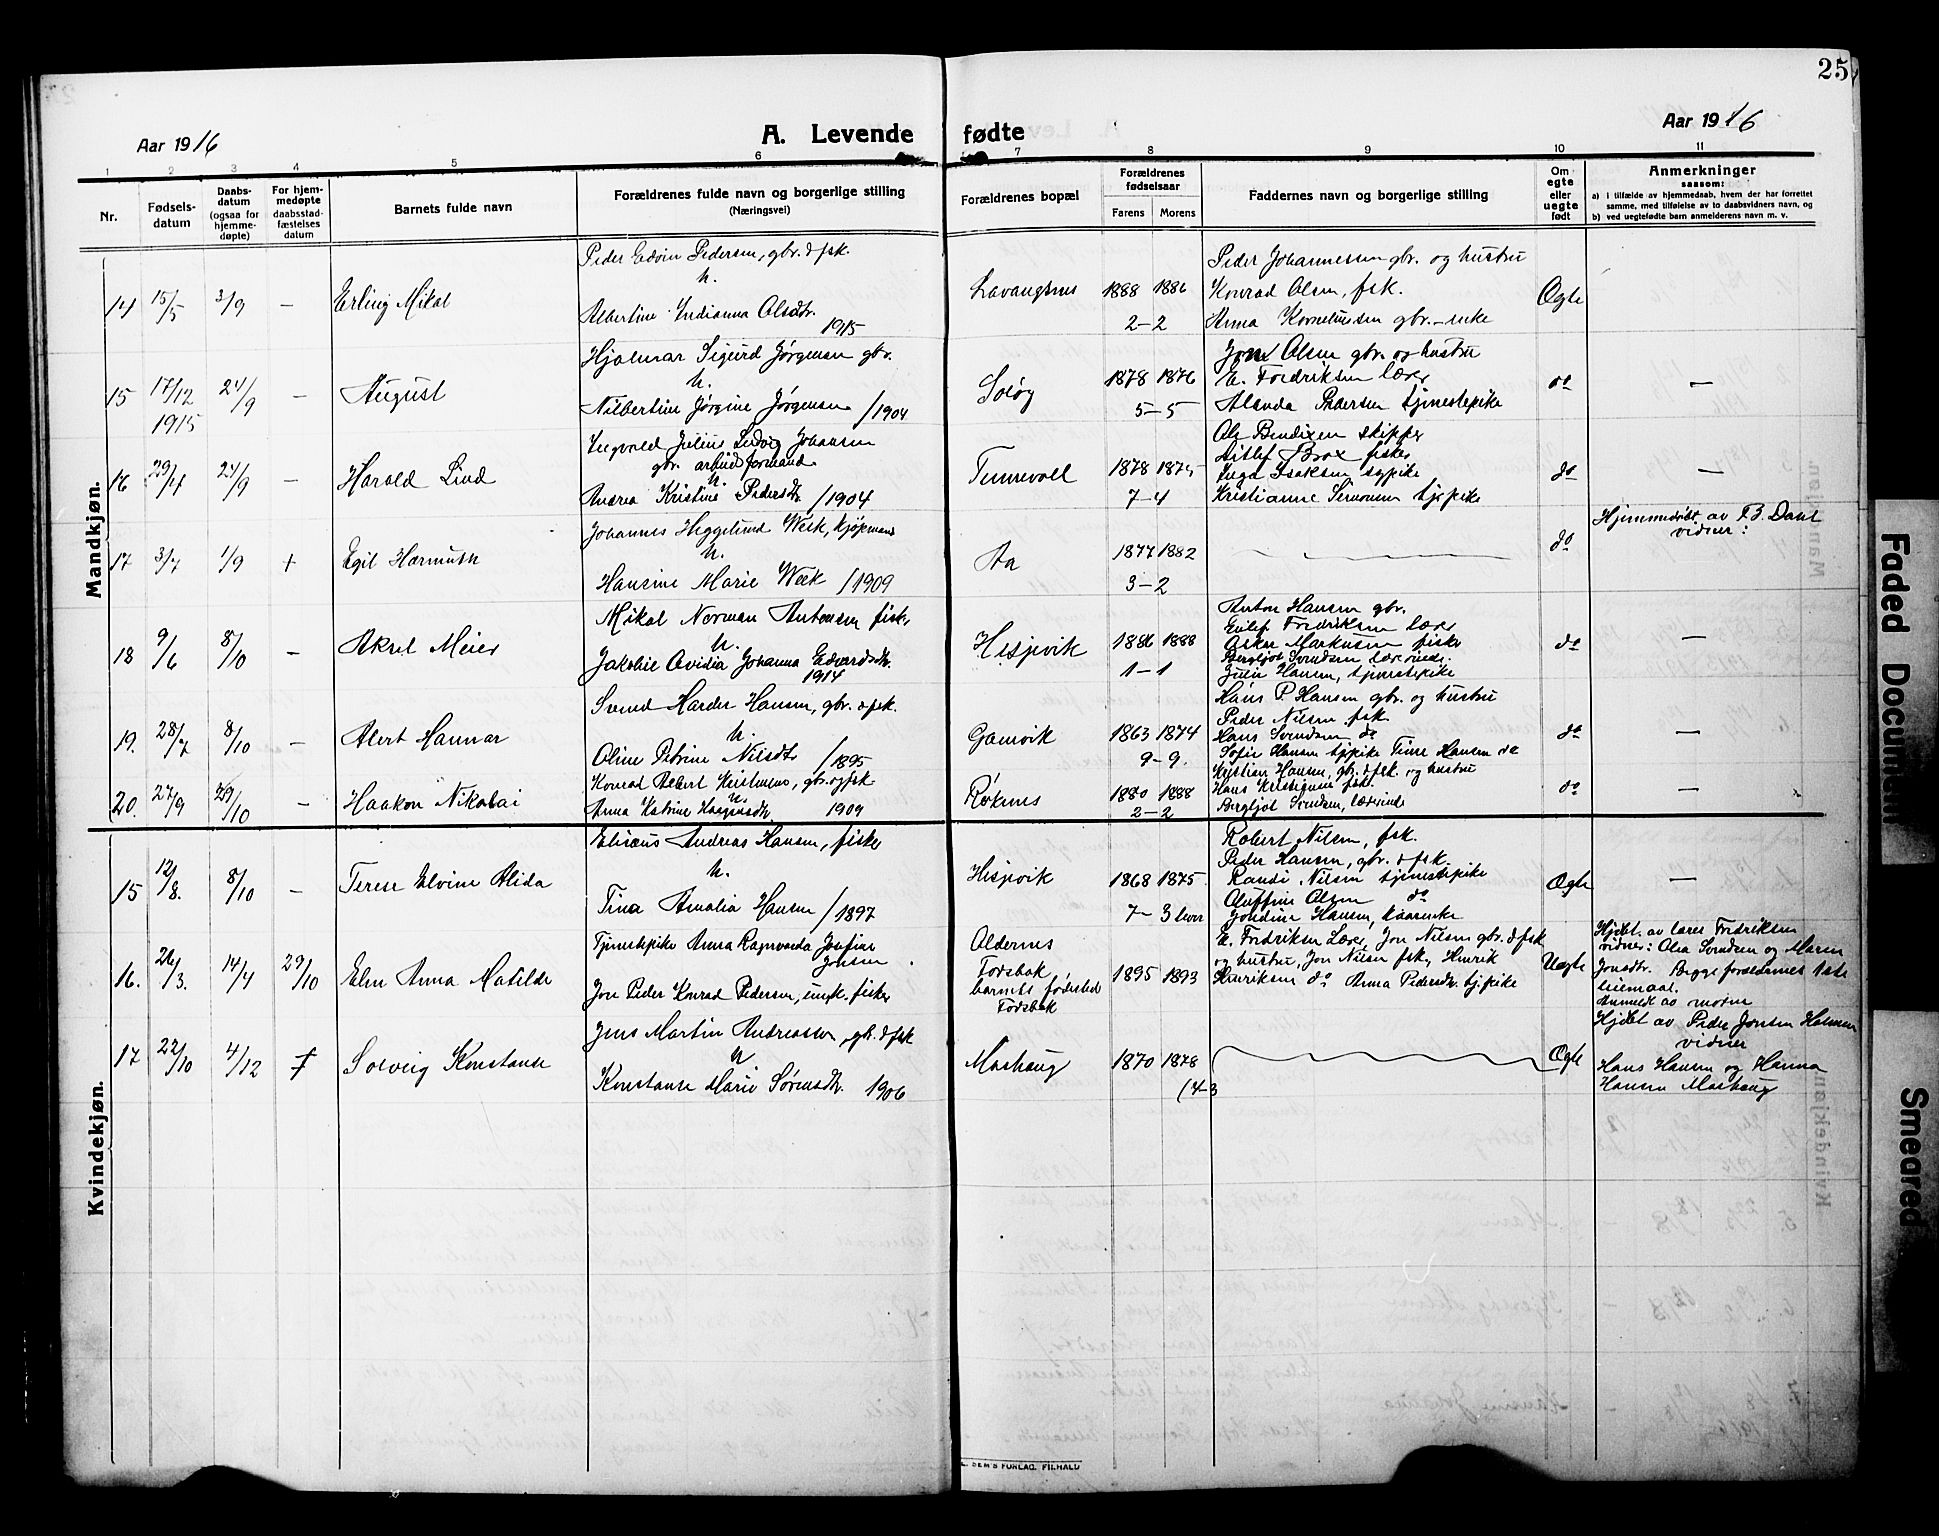 25
Aar 1916
A. Levende fødte
Aar 1916
1 2 3 4 5 6 7 8 9 10 11
Nr.
Fødsels-
datum
Daabs-
datum
(ogsaa for
hjemme-
døpte)
For hjem-
medøpte
daabsstad-
fæstelses
datum
Barnets fulde navn
Forældrenes fulde navn og borgerlige stilling
(Næringsvei)
Forældrenes bopæl
Forældrenes
fødselsaar
Farens Morens
Faddernes navn og borgerlige stilling
Om
egte
eller
uegte
født
Anmerkninger
saasom:
a) i tilfælde av hjemmedaab, hvem der har forrettet
samme, med tilføielse av to daabsvidners navn, og
b) ved uegtefødte barn anmelderens navn m. v.
Mandkjøn.
14 15/5 3/9 – Erling Mikal
Peder Edvin Pedersen, gbr. & fsk.
h.
Albertine Indianna Olsdtr.
1915
Lavangsnes 1888 1886
2–2
Peder Johannessen gbr. og hustru
Konrad Olsen, fsk.
Anna Korneliussen gbr.–enke
Egte
15 17/12 1915 24/9 – August
Hjalmar Sigurd Jørgensen gbr.
h.
Nilbertine Jørgine Jørgensen /1904
Soløy 1878 1876
5–5
Jon Olsen gbr. og hustru
E. Fredriksen lærer
Alavda Pedersen tjenestepike
do –
16 29/4 24/9 – Harald Lind
Ingvald Julius Ludvig Johansen
gbr. arbeidsformand
h.
Andrea Kristine Pedersdtr. /1904
Tennevoll 1878 1875
7–4
Ole Bendixen skipper
Ditlef Brox fisker
Inga Isaksen sypike
Kristianne Simonsen tj.pike
do –
17 3/7 1/9 + Egil Harmuth
Johannes Heggelund Wæk, kjøpmand
h.
Hansine Marie Wæk /1909
Aa 1877 1882
3–2
do
Hjemmedøbt av F.B. Dahl
vidner:
18 9/6 8/10 – Aksel Meier
Mikal Norman Antonsen fisker
h.
Jakobie Ovidia Johanna Edvardsdtr.
1914
Hesjevik 1886 1888
1–1
Anton Hansen gbr.
Eilef Fredriksen lærer
Oskar Markusen fisker
Bergljot Svendsen lærerinde
Julie Hansen, tjenestepike
do –
19. 28/7 8/10 – Alert Hannar
Svend Harder Hansen, gbr. & fsk.
h.
Oline Petrine Nilsdtr. /1895
Gamvik 1863 1874
9–9.
Hans P. Hansen gbr. og hustru
Peder Nilsen fsk.
Hans Svendsen do
Sofie Hansen tj.pike Tinne Hansen do
do –
20. 27/9 29/10 – Haakon Nikolai
Konrad Albert Kristensen, gbr. og fsk.
h.
Anna Katrine Haagensdtr. 1909
Røkenes 1880 1888
2–2
Kristian Hansen, gbr. & fsk. og hustru
Hans Kristiansen fsk.
Bergljot Svendsen, lærerinde
do –
Kvindekjøn.
15 12/8. 8/10 – Terese Elvine Alida
Eliseus Andreas Hansen, fisker
h.
Tina Amalia Hansen /1897
Hesjevik 1868 1875.
7–3 lever
Robert Nilsen, fsk.
Peder Hansen, gbr. & fsk.
Randi Nilsen tjenestepike
Oluffine Olsen do
Jordine Hansen, kaarenke
Egte –
16. 26/3. 14/4 29/10 Elen Anna Matilde
Tjenestepike Anna Ragnvarda Josefine
Jensen.
Jon Peder Konrad Pedersen, ungk. fisker
Oldernes
Fosbak
barnets fødested
Fosbak
1895 1893
E. Fredriksen Lærer, Jon Nilsen gbr. & fsk
og hustru, Jon Nilsen fsk, Henrik
Henriksen do Anna Pedersdtr. tj.pike
Uegte
Hjdbt. av lærer Fredriksen
vidner: Olea Svendsen og Maren
Jonsdtr. Begge forældrenes 1ste
leiemaal.
Anmeldt av moren
17 22/10 4/12 + Solveig Konstanse
Jens Martin Andreassen, gbr. & fsk
h.
Konstanse Marie Sørensdtr. 1906
Moshaug 1870 1878
(4–3
Egte
Hjdbt av Peder Jonsen Hansen
vidner
Hans Hansen og Hanna
Hansen Moshaug
E. SEM'S FORLAG. F.HALD
Faded Document
Smeared